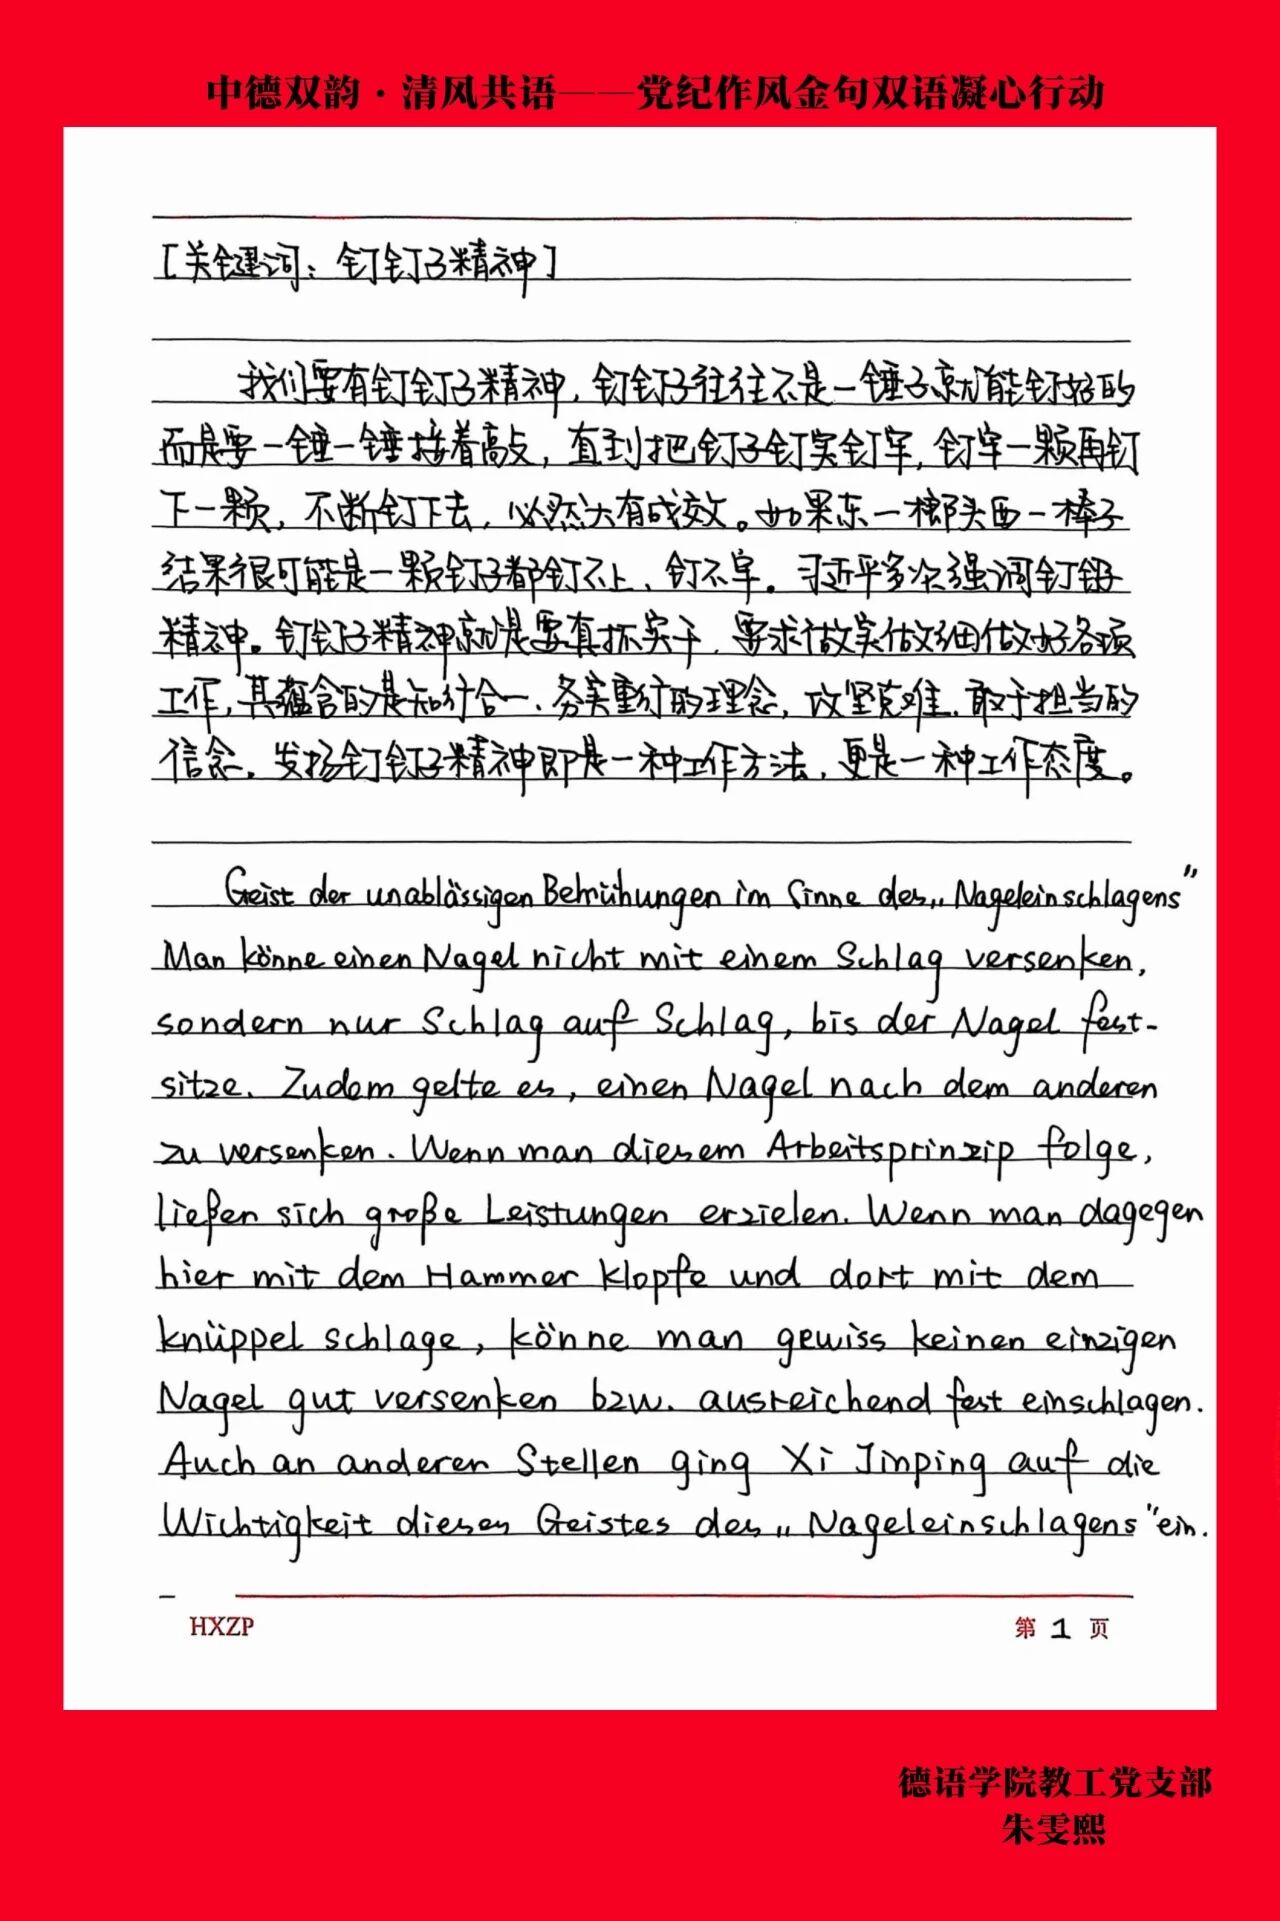 中德双韵·清风共语——党纪作风金句双语凝心行动
[关键词：钉钉子精神]
我们要有钉钉子精神，钉钉子往往不是一锤子就能钉好的
而是要一锤一锤接着敲，直到把钉子钉实钉牢，钉牢一颗再钉
下一颗，不断钉下去，必然大有成效。如果东一榔头西一棒子
结果很可能是一颗钉子都钉不上、钉不牢。习近平多次强调钉钉子
精神。钉钉子精神就是要真抓实干，要求做实做细做好各项
工作，其蕴含的是知行合一、务实重行的理念，攻坚克难、敢于担当的
信念。发扬钉钉子精神即是一种工作方法，更是一种工作态度。
Geist der unablässigen Bemühungen im Sinne des „Nageleinschlagens“
Man könne einen Nagel nicht mit einem Schlag versenken,
sondern nur Schlag auf Schlag, bis der Nagel fest-
sitze. Zudem gelte es, einen Nagel nach dem anderen
zu versenken. Wenn man diesem Arbeitsprinzip folge,
ließen sich große Leistungen erzielen. Wenn man dagegen
hier mit dem Hammer klopfe und dort mit dem
knüppel schlage, könne man gewiss keinen einzigen
Nagel gut versenken bzw. ausreichend fest einschlagen.
Auch an anderen Stellen ging Xi Jinping auf die
Wichtigkeit dieses Geistes des „Nageleinschlagens“ ein.
HXZP 第 1 页
德语学院教工党支部
朱雯熙